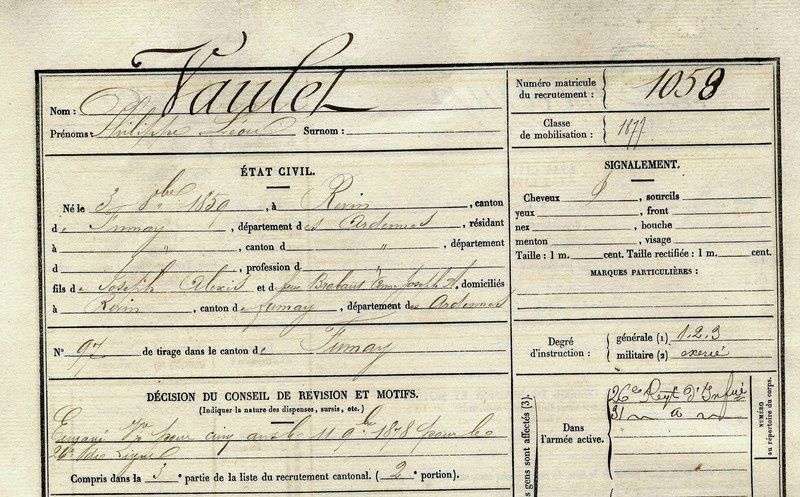 Vaulet
Nom :
Prénoms : Philippe Léon Surnom :
ÉTAT CIVIL.
Né le 3 8bre 1859, à Revin, canton
de Fumay, département des Ardennes, résidant
à " , canton d " , département
d , profession d "
fils de Joseph Alexis et de feue Brabant domiciliés
à Revin, canton de fumay, département des Ardennes
N° 97 de tirage dans le canton de Fumay
DÉCISION DU CONSEIL DE REVISION ET MOTIFS.
(Indiquer la nature des dispenses, sursis, etc.)
pour cinq ans le 11 9bre 1878 pour le
26e de Ligne
Compris dans la 3e partie de la liste du recrutement cantonal. (2e portion).
Numéro matricule
du recrutement : 1058
Classe
de mobilisation : 1877
SIGNALEMENT.
Cheveux , sourcils
yeux , front
nez , bouche
menton , visage
Taille : 1 m. cent. Taille rectifiée : 1 m. cent.
MARQUES PARTICULIÈRES :
Degré
d'instruction :
générale (1) 1.2.3
militaire (2) exercé
26e Regt d'Infie
31 a
Dans
l'armée active.
gens sont affectés (3).
NUMÉRO
au répertoire du corps.